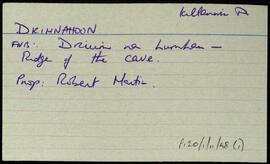 Killannin P
DRIMNAHOON
FNB: Druim na hUamhan -
Ridge of the cave.
Prop: Robert Martin.
P120/1/11/68 (1)